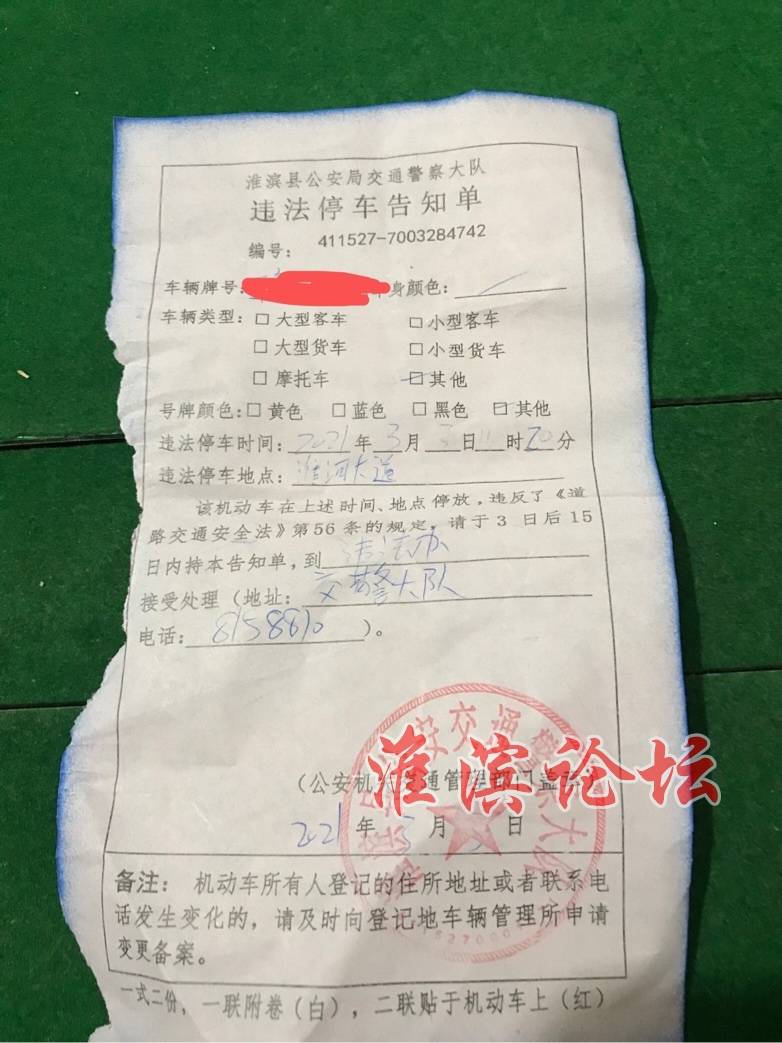 淮滨县公安局交通警察大队
违法停车告知单
编号: 411527-7003284742
车辆牌号: 身颜色:
车辆类型: □大型客车 □小型客车
□大型货车 □小型货车
□摩托车 □其他
号牌颜色: □黄色 □蓝色 □黑色 □其他
违法停车时间: 2021年3月3日11时20分
违法停车地点: 淮河大道
该机动车在上述时间、地点停放,违反了《道
路交通安全法》第56条的规定,请于3日后15
日内持本告知单,到 违法办
接受处理(地址: 交警大队
电话: 8158810 )。
(公安机关交通管理部门盖章)
2021年3月 日
淮滨论坛
备注: 机动车所有人登记的住所地址或者联系电
话发生变化的,请及时向登记地车辆管理所申请
变更备案。
一式二份,一联附卷(白),二联贴于机动车上(红)